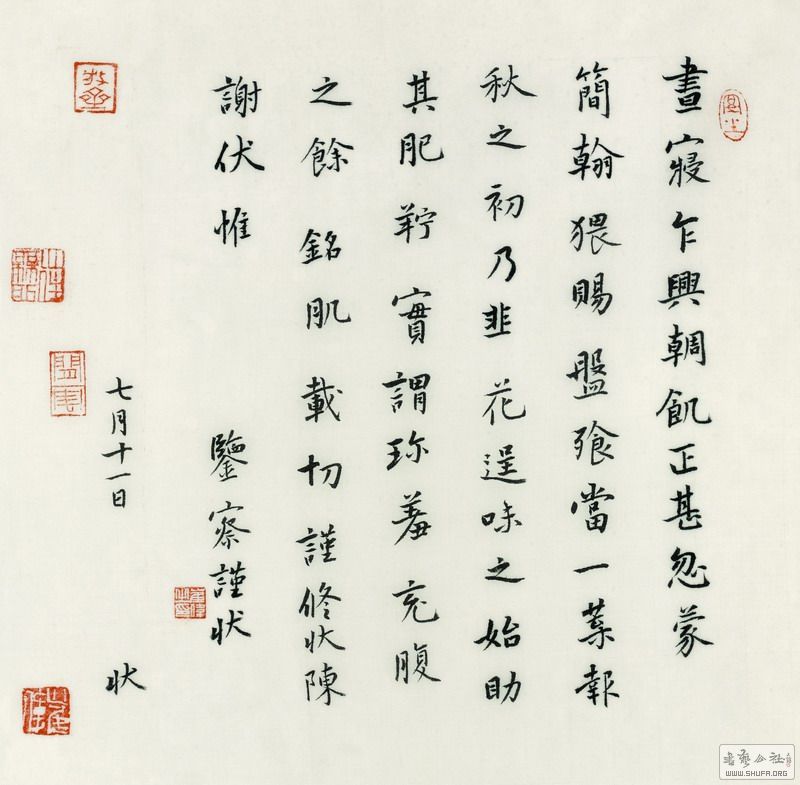 晝寢乍興輖飢正甚忽蒙
簡翰猥賜盤飧當一葉報
秋之初乃韭花逞味之始助
其肥羜實謂珍羞充腹
之餘銘肌載切謹修狀陳
謝伏惟
鑒察謹狀
七月十一日
狀
書藝公社
WWW.SHUFA.ORG